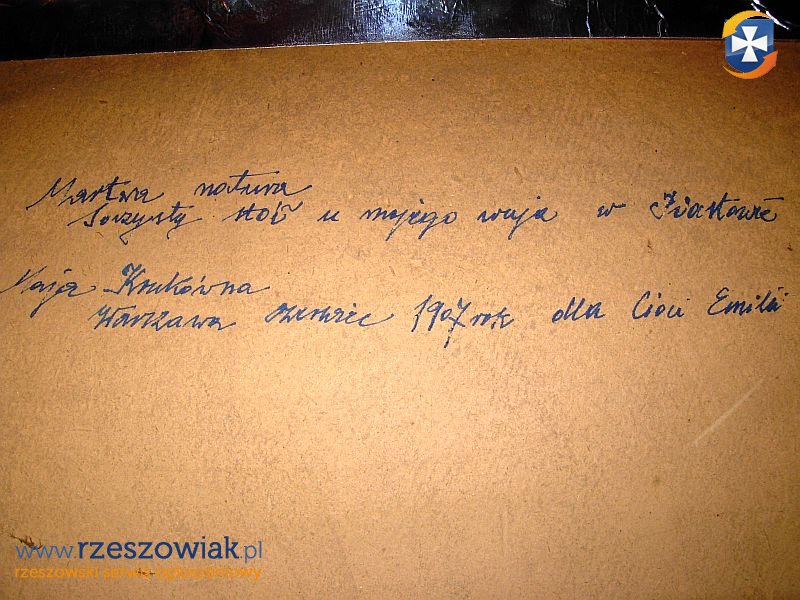 Martwa natura
Soczysty stół u mojego wuja w
Maja Krukówna
Warszawa czerwiec 1907 rok dla Cioci Emilii
www.rzeszowiak.pl
rzeszowski serwis ogłoszeniowy